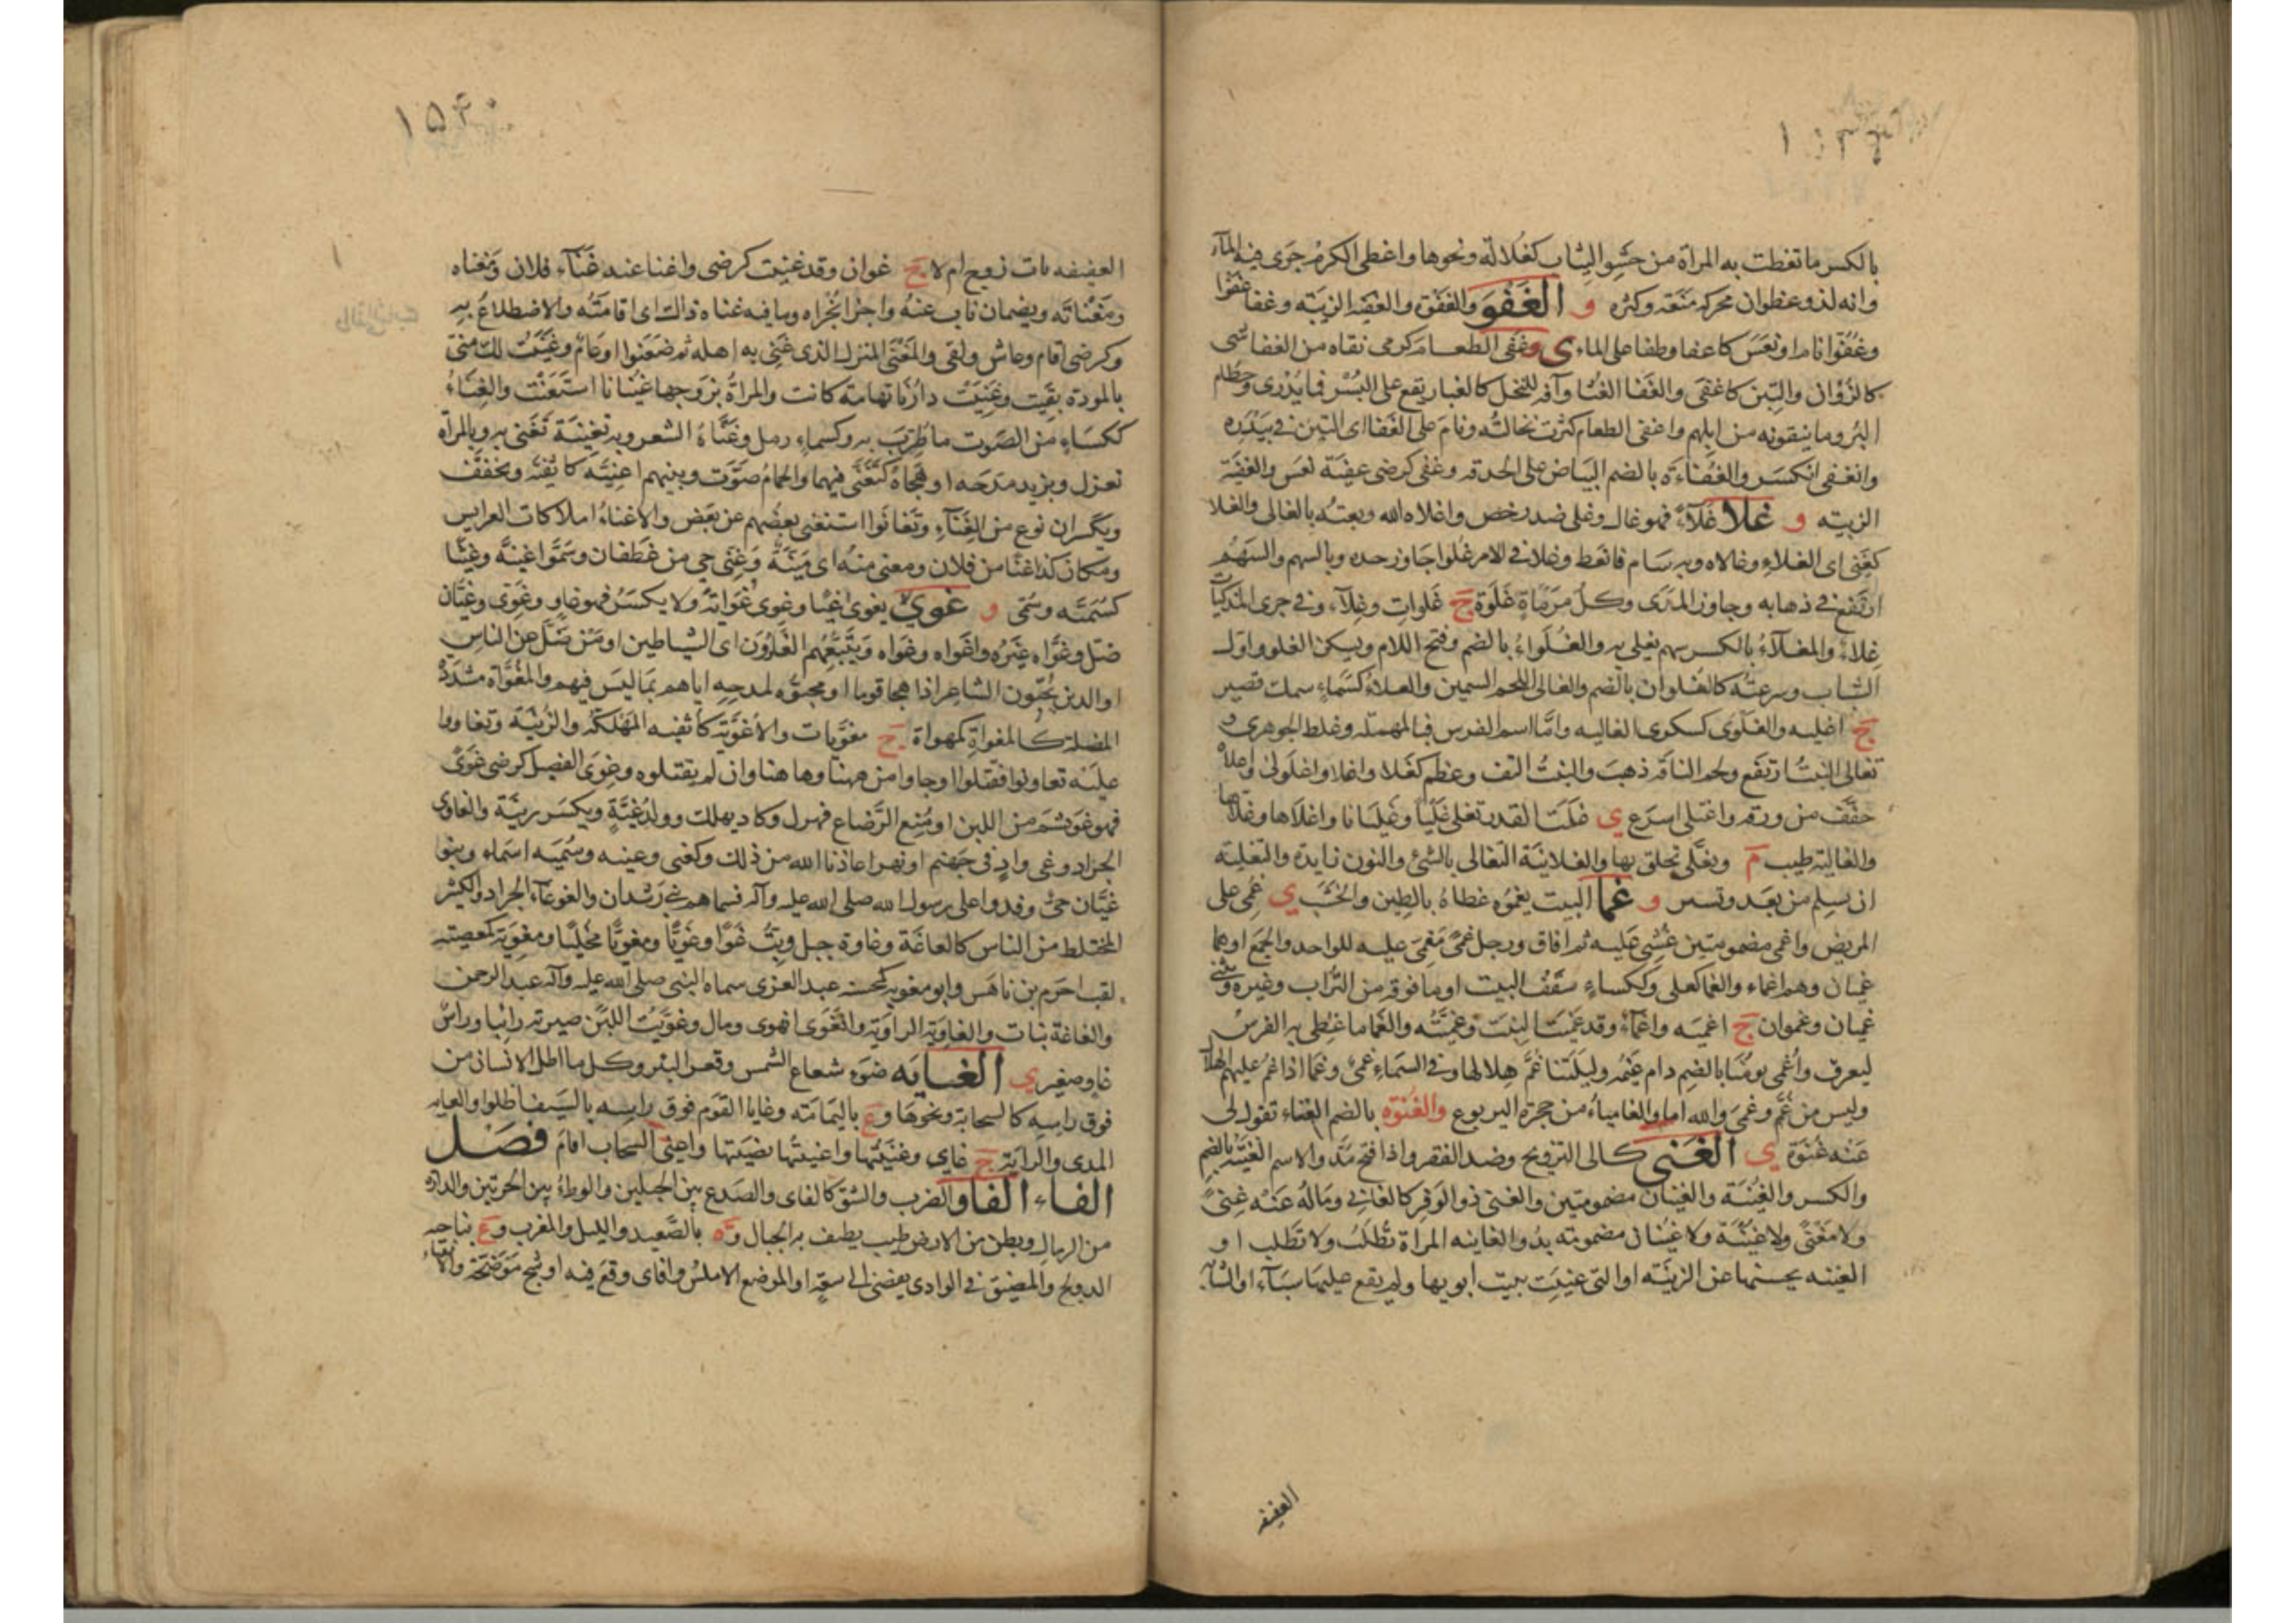 بالكسر ما تغطت به المراة من حشو الثياب كغلالة ونحوها واغطى الكرم جرى فيه الماء
وانه لذو غطوان محركة منعة وكثرة و الغَفْو والغفوة والغفية الزبية وغفا غفوا
وغُفُوّا نام او نعس كاغفا وطفا على الماء ى وغفى الطعام كرمى نقاه من الغفا لشى
كالزؤان والتبن كاغفى والغفا الغثا وآفة للنخل كالغبار يقع على البسر فما يدرى وحطام
البر وما ينفونه من ابلهم واغفى الطعام كثرت نخالته ونام على الغفا اى التبن فى بيدره
وانغفى انكسر والغُفاءة بالضم البياض على الحدقة وغفى كرضى غفية نعس والغفية
الزبية و غلا غلاء فهو غال وغلى ضد رخص واغلاه الله وبعته بالغالى والغلا
كغنى اى الغلاء وغالاه وبه سام فابعط وغلا فى الامر غلوا جاوز حده وبالسهم والسهم
ارتفع فى ذهابه وجاوز المدى وكل مرماة غلوة ج غلوات وغلاء وفى جرى المذكيات
غلاء والمغلاء بالكسر سهم يغلى به والغُلَواء بالضم وفتح اللام ويسكن الغلو واول
الشباب وسرعته كالغلوان بالضم والغالى اللحم السمين والغلاء كسماء سمك قصير
ج اغلية والغلوى كسكرى الغالية واما اسم الفرس فبالمهملة وغلط الجوهرى و
تغالى النبت ارتفع ولحم الناقة ذهب والنبت التف وعظم كغلا واغلا واغلولى واغلاه
خفف من ورقه واغتلى اسرع ى غلت القدر تغلى غليا وغليانا واغلاها وغلاها
والغالية طيب م وتغلى تخلق بها والغلانية التغالى بالشئ والنون زايدة والتغلية
ان يسلم من بعد وتسير و غما البيت يغموه غطاه بالطين والخشب ى غمى على
المريض واغمى مضمومتين غشى عليه ثم افاق ورجل غمى مغمى عليه للواحد والجمع او هما
غميان وهم اغماء والغما كعلى وككساء سقف البيت او ما فوقه من التراب وغيره وتثنى
غميان وغموان ج اغمية واغماء وقد غميت البيت وغميته والغما ما غطى به الفرس
ليعرق واُغمى يومُنا بالضم دام غيمه وليلتنا غم هلالها وفى السماء غمى وغما اذا غم عليهم الهلال
وليس من غُمّ وغمى والله اما والله والغامياء من جحرة اليربوع والغُنوة بالضم الغناء تقول لى
عنه غُنوة ى الغنى كالى التزويج وضد الفقر واذا فتح مد والاسم الغنية بالضم
والكسر والغنية والغنيان مضمومتين والغنى ذو الوفر كالغانى وماله عنه غنى
ولا مغنى ولا غنية ولا غنيان مضمومة بد والغانية المراة تُطلب ولا تَطلب او
الغنية بحسنها عن الزينة او التى غنيت ببيت ابويها ولم يقع عليها سباء او الشابة
العفيفة
العفيفة ذات زوج ام لا ج غوان وقد غنيت كرضى واغنا عنه غناء فلان ومغناه
ومغناته ويضمان ناب عنه واجزا مجزاه وما فيه غناء ذاك اى اقامته والاضطلاع به
وكرضى اقام وعاش ولقى والمغنى المنزل الذى غنى به اهله ثم ضعنوا او عام وغنيت لك منى
بالمودة بقيت وغنيت دارنا تهامة كانت والمراة بزوجها غنيانا استغنت والغِناء
ككساء من الصوت ما طرب به وكسماء رمل وغناه الشعر وبه تغنية تغنى به وبالمراة
تغزل وبزيد مدحه او هجاه كتغنى فيهما والحمام صوت وبينهم اغنية كاثفية ويخفف
ويكسران نوع من الغناء وتغانوا استغنى بعضهم عن بعض والاغناء املاكات العرايس
ومكان كذا غنا من فلان ومغنى منه اى مئنة وغنى حى من غطفان وسموا غنية وغنيا
كسُمَيّة وسُمَى و غوى يغوى غيا وغوى غواية ولا يكسر فهو غاو وغوى وغيان
ضل وغواه غيره واغواه وغواه ويتبعهم الغاوون اى الشياطين او من ضل عن الناس
او الذين يحبون الشاعر اذا هجا قوما او محبوه لمدحه اياهم بما ليس فيهم والمغواة مشددة
المضلة كالمغواة كمهواة ج مغويات والاغوية كاثفية المهلكة والزبية وتغاووا
عليه تعاونوا فقتلوا او جاوا من هنا وها هنا وان لم يقتلوه وغوى الفصيل كرضى غوى
فهو غو بشم من اللبن او منع الرضاع فهزل وكاد يهلك وولد غية ويكسر زنية والغاوى
الجراد وغى واد فى جهنم او نهر اعاذنا الله من ذلك وكغنى وغنية وسمية اسماء وبنوا
غيان حى وفدوا على رسول الله صلى الله عليه وآله فسماهم بنى رشدان والغوغاء الجراد والكثير
المختلط من الناس كالغاغة وغاوة جبل وبت غوا وغويا ومغويا مخليا ومغوية كمعصية
لقب اجرم بن ناهس وابو مغوية كمحسنة عبد العزى سماه النبى صلى الله عليه وآله عبد الرحمن
والغاغة نبات والغاوية الراوية وانغوى انهوى ومال وغويت اللبن صيرته رائبا وراس
غاو صغير ى الغيايه ضوء شعاع الشمس وقعر البئر وكل ما اظل الانسان من
فوق راسه كالسحابة ونحوها وع باليمامة وغايا القوم فوق راسه بالسيف اظلوا والغاية
المدى والراية ج غاى وغييتها واغييتها نصبتها واغيى السحاب اقام فصل
الفاء الفاو الضرب والشق كالفاى والصدع بين الجبلين والوطئ بين الحرتين والدارة
من الرمال وبطن من الارض طيب يطيف به الجبال وة بالصعيد والليل والمغرب وع بناحية
الدولج والمضيق فى الوادى يفضى الى سعة او الموضع الاملس وافاى وقع فيه او شج موضحة